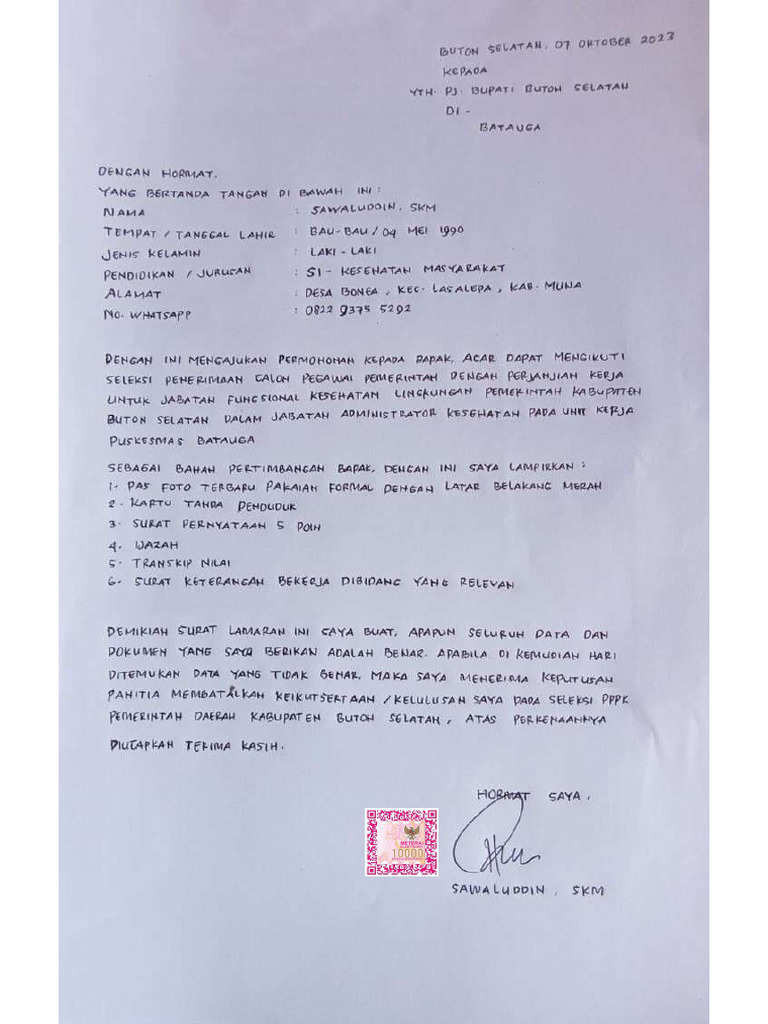 BUTON SELATAN, 07 OKTOBER 2023
KEPADA
YTH. PJ. BUPATI BUTON SELATAN
DI -
BATAUGA
DENGAN HORMAT,
YANG BERTANDA TANGAN DI BAWAH INI :
NAMA : SAWALUDDIN, SKM
TEMPAT / TANGGAL LAHIR : BAU-BAU / 04 MEI 1990
JENIS KELAMIN : LAKI - LAKI
PENDIDIKAN / JURUSAN : S1 - KESEHATAN MASYARAKAT
ALAMAT : DESA BONEA, KEC. LASALEPA, KAB. MUNA
NO. WHATSAPP : 0822 9375 5292
DENGAN INI MENGAJUKAN PERMOHONAN KEPADA BAPAK, AGAR DAPAT MENGIKUTI
SELEKSI PENERIMAAN CALON PEGAWAI PEMERINTAH DENGAN PERJANJIAN KERJA
UNTUK JABATAN FUNGSIONAL KESEHATAN LINGKUNGAN PEMERINTAH KABUPATEN
BUTON SELATAN DALAM JABATAN ADMINISTRATOR KESEHATAN PADA UNIT KERJA
PUSKESMAS BATAUGA
SEBAGAI BAHAN PERTIMBANGAN BAPAK, DENGAN INI SAYA LAMPIRKAN :
1. PAS FOTO TERBARU PAKAIAN FORMAL DENGAN LATAR BELAKANG MERAH
2. KARTU TANDA PENDUDUK
3. SURAT PERNYATAAN 5 POIN
4. IJAZAH
5. TRANSKIP NILAI
6. SURAT KETERANGAN BEKERJA DIBIDANG YANG RELEVAN
DEMIKIAN SURAT LAMARAN INI SAYA BUAT, APAPUN SELURUH DATA DAN
DOKUMEN YANG SAYA BERIKAN ADALAH BENAR. APABILA DI KEMUDIAN HARI
DITEMUKAN DATA YANG TIDAK BENAR, MAKA SAYA MENERIMA KEPUTUSAN
PANITIA MEMBATALKAN KEIKUTSERTAAN / KELULUSAN SAYA PADA SELEKSI PPPK
PEMERINTAH DAERAH KABUPATEN BUTON SELATAN, ATAS PERKENAANNYA
DIUCAPKAN TERIMA KASIH.
HORMAT SAYA,
METERAI
10000
SAWALUDDIN, SKM